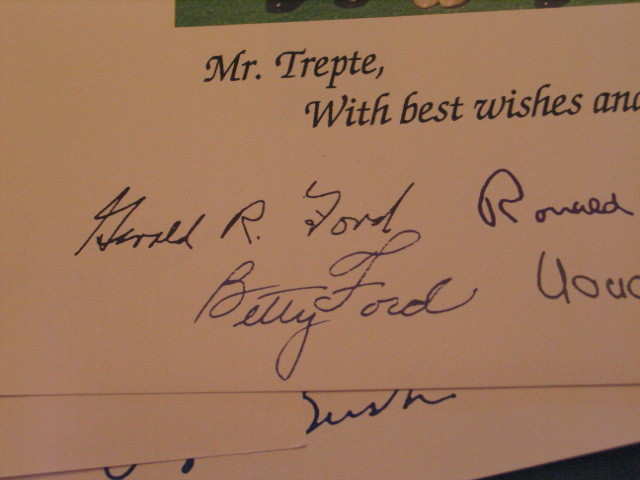 Mr. Trepte,
With best wishes and
Gerald R. Ford Ronald
Betty Ford